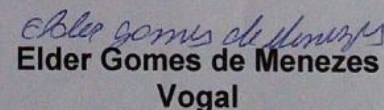 Elder Gomes de Menezes
Elder Gomes de Menezes
Vogal